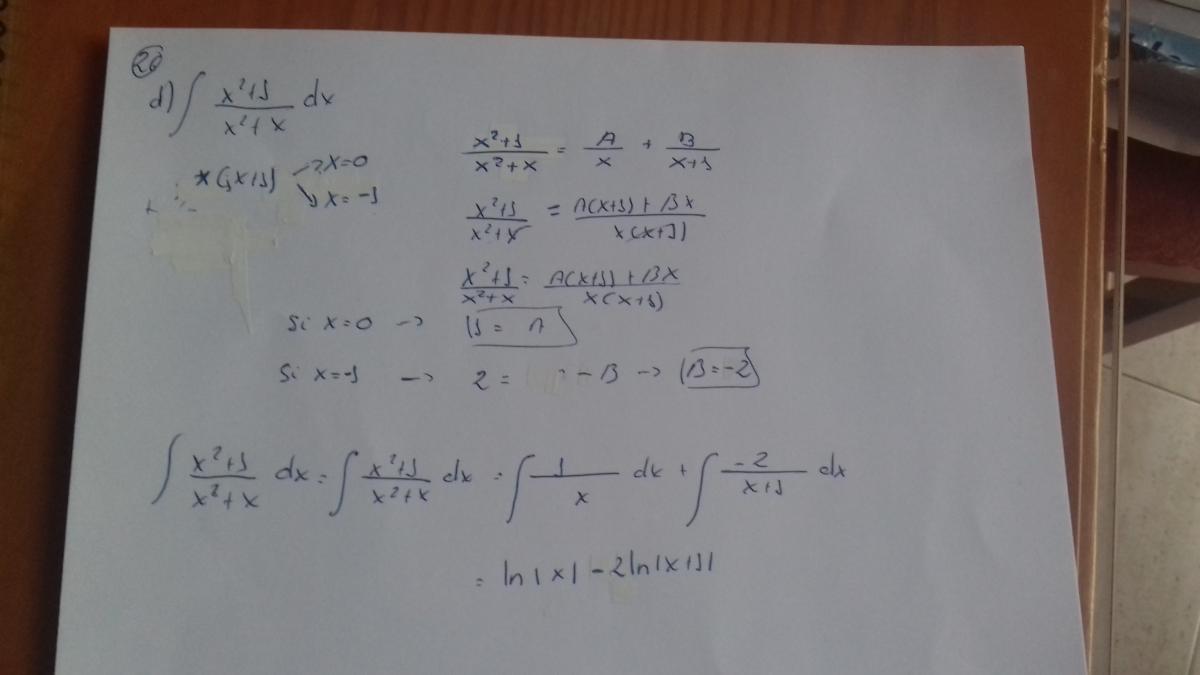 26
d) ∫ x²+1 / x²+x dx
x(x+1) → x=0
→ x=-1
x²+1 / x²+x = A / x + B / x+1
x²+1 / x²+x = A(x+1)+Bx / x(x+1)
x²+1 / x²+x = A(x+1)+Bx / x(x+1)
Si x=0 → 1 = A
Si x=-1 → 2 = -B → B=-2
∫ x²+1 / x²+x dx = ∫ x²+1 / x²+x dx = ∫ 1 / x dx + ∫ -2 / x+1 dx
= ln|x| - 2ln|x+1|